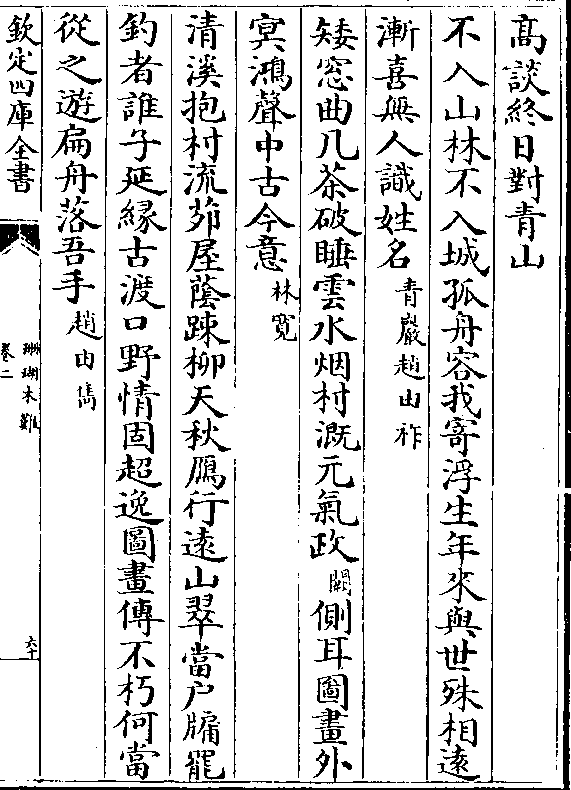 髙談終日對青山
不入山林不入城孤舟容我寄浮生年來與世殊相逺
漸喜無人識姓名青巖趙由祚
矮窓曲几茶破睡雲水烟村溉元氣政闕側耳圗畫外
冥鴻聲中古今意林寛
清溪抱村流茆屋蔭踈柳天秋鴈行逺山翠當户牖罷
釣者誰子延縁古渡口野情固超逸圖畫傳不朽何當
從之遊扁舟落吾手趙由儁
欽定四庫全書
珊瑚木難
卷二
六十